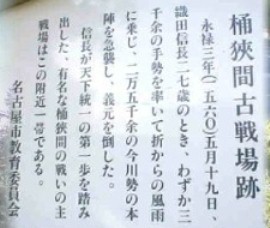 桶狭間古戦場跡
永禄三年(一五六〇)五月十九日、
織田信長二七歳のとき、わずか三
千余の手勢を率いて折からの風雨
に乗じ、二万五千余の今川勢の本
陣を急襲し、義元を倒した。
信長が天下統一の第一歩を踏み
出した、有名な桶狭間の戦いの主
戦場はこの附近一帯である。
名古屋市教育委員会